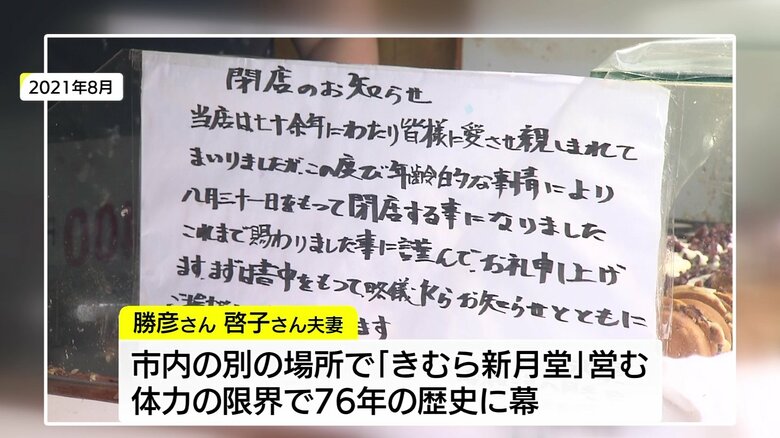 2021年8月
閉店のお知らせ
当店は七十余年にわたり皆様に愛させ親しまれて
まいりましたが、この度び年齢的な事情により
八月三十一日をもって閉店する事になりました
これまで賜わりました事に謹んで、お礼申し上げ
ます。まずは書中をもって、略儀ながらお知らせとともに
ご ます
勝彦さん 啓子さん夫妻
市内の別の場所で「きむら新月堂」営む
体力の限界で76年の歴史に幕